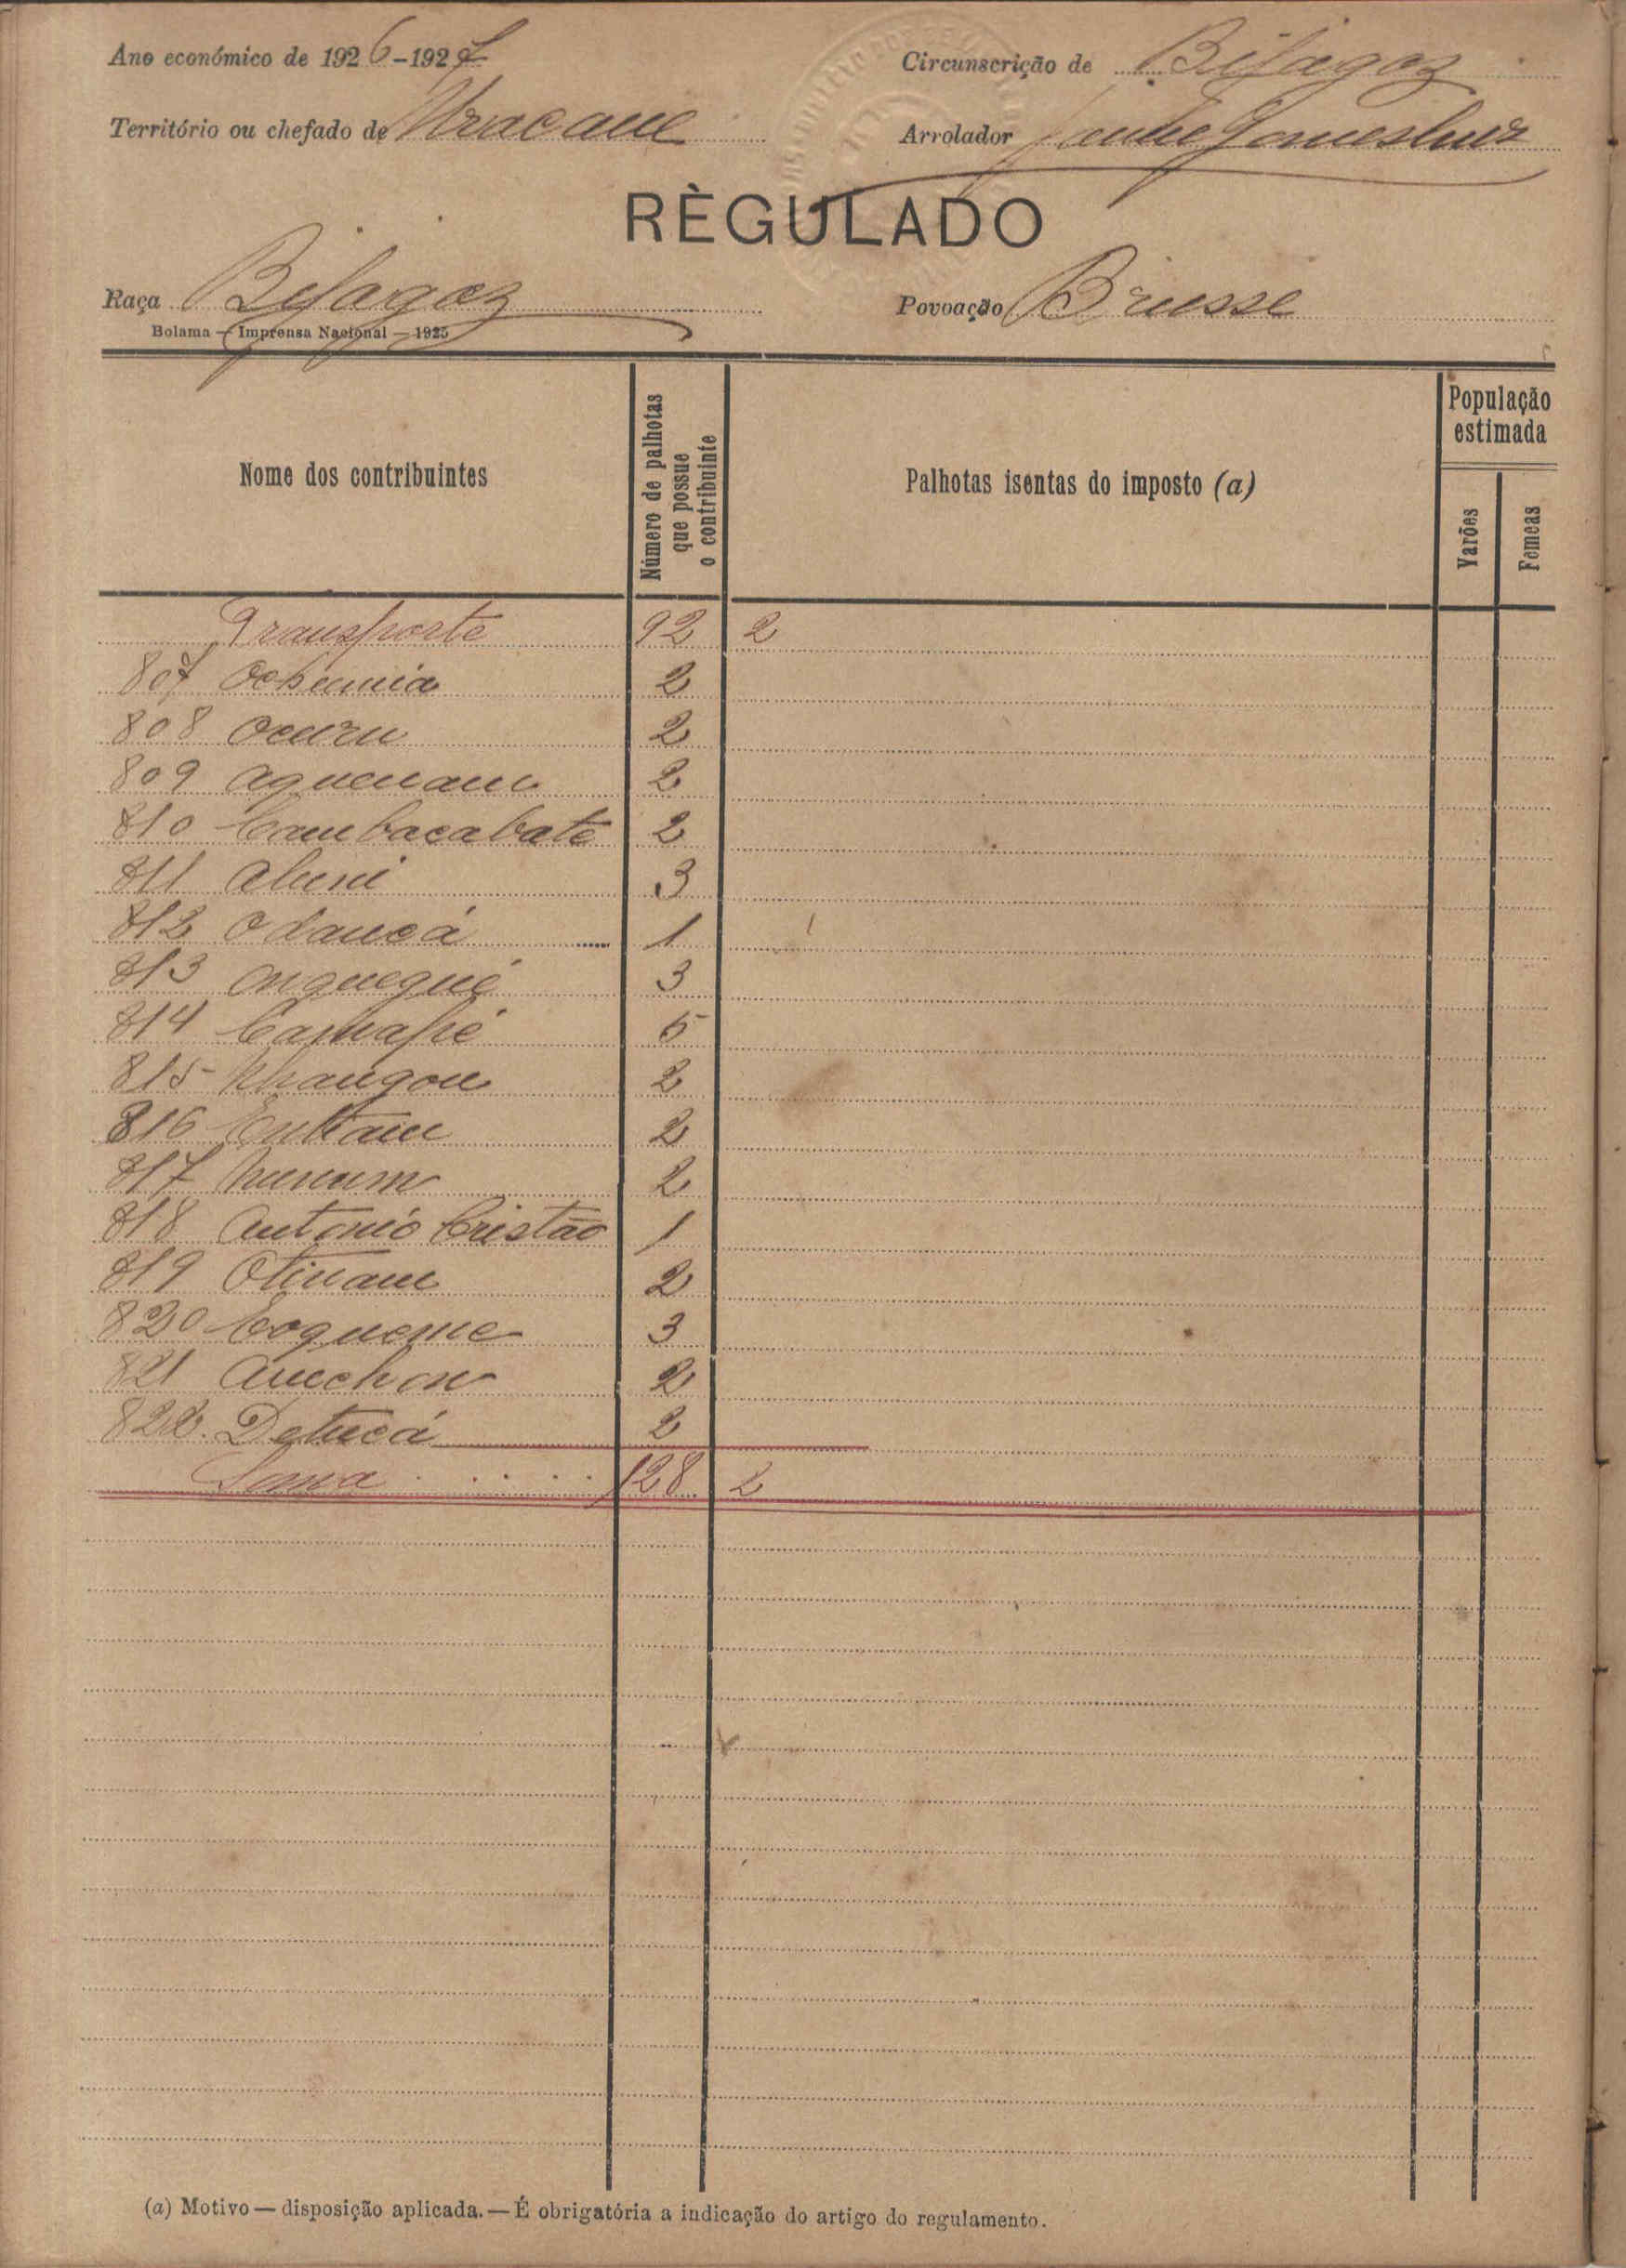 Ano económico de 1926-1927
Circunscrição de Bijagoz
Território ou chefado de Uracane
Arrolador
RÈGULADO
Raça Bijagoz
Povoação Briusse
Bolama — Imprensa Nacional — 1925
Nome dos contribuintes
Número de palhotas que possue o contribuinte
Palhotas isentas do imposto (a)
População estimada
Varões
Femeas
Transporte 92 2
807 2
808 Ocuru 2
809 Aquenam 2
810 Cambacabate 2
811 3
812 Odancá 1
813 3
814 5
815 2
816 2
817 2
818 António Cristão 1
819 Otinam 2
820 Coqueme 3
821 2
822 Detucá 2
Soma 128 2
(a) Motivo — disposição aplicada. — É obrigatória a indicação do artigo do regulamento.